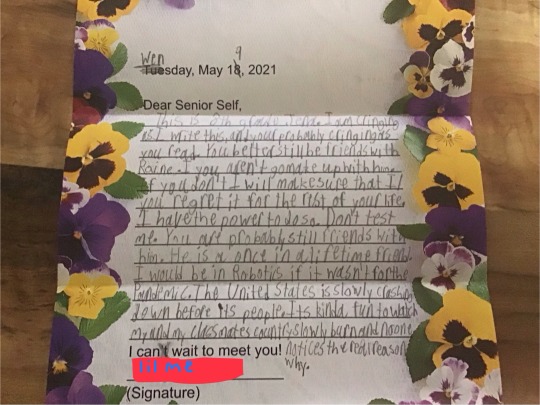 Wen 9
Tuesday, May 18, 2021
Dear Senior Self,
This is 8th grade I am cringing
as I write this, and your probably cringing as
you read. You better still be friends with
Raine. I you aren't gonna te up with him
if you don't I will make sure that
you regret it for the rest of your life.
I have the power to do so. Don't test
me. You are probably still friends with
him. He is a once in a lifetime friend.
I would be in Robotics if it wasn't for the
Pandemic. The United States is slowly crashing
down before its people. Its kinda fun to watch
my and my classmates country slowly burn and no one
I can't wait to meet you! notices the real reason
lil me why.
(Signature)